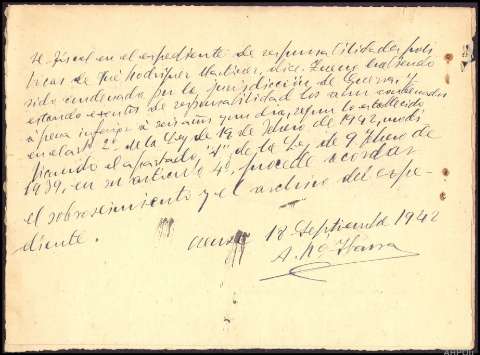 El Fiscal en el expediente de responsabilidades polí
ticas de José Rodríguez Martínez, dice: Que habiendo
sido condenado por la jurisdicción de Guerra y
estando exentos de responsabilidad los condenados
a pena inferior a seis años y un día, según lo establecido
en el artº 2º de la Ley de 19 de Febrero de 1942, modi
ficando el apartado "a" de la Ley de 9 Febrero de
1939, en su artículo 4º, procede acordar
el sobreseimiento y el archivo del expe-
diente.
18 Septiembre 1942
A.